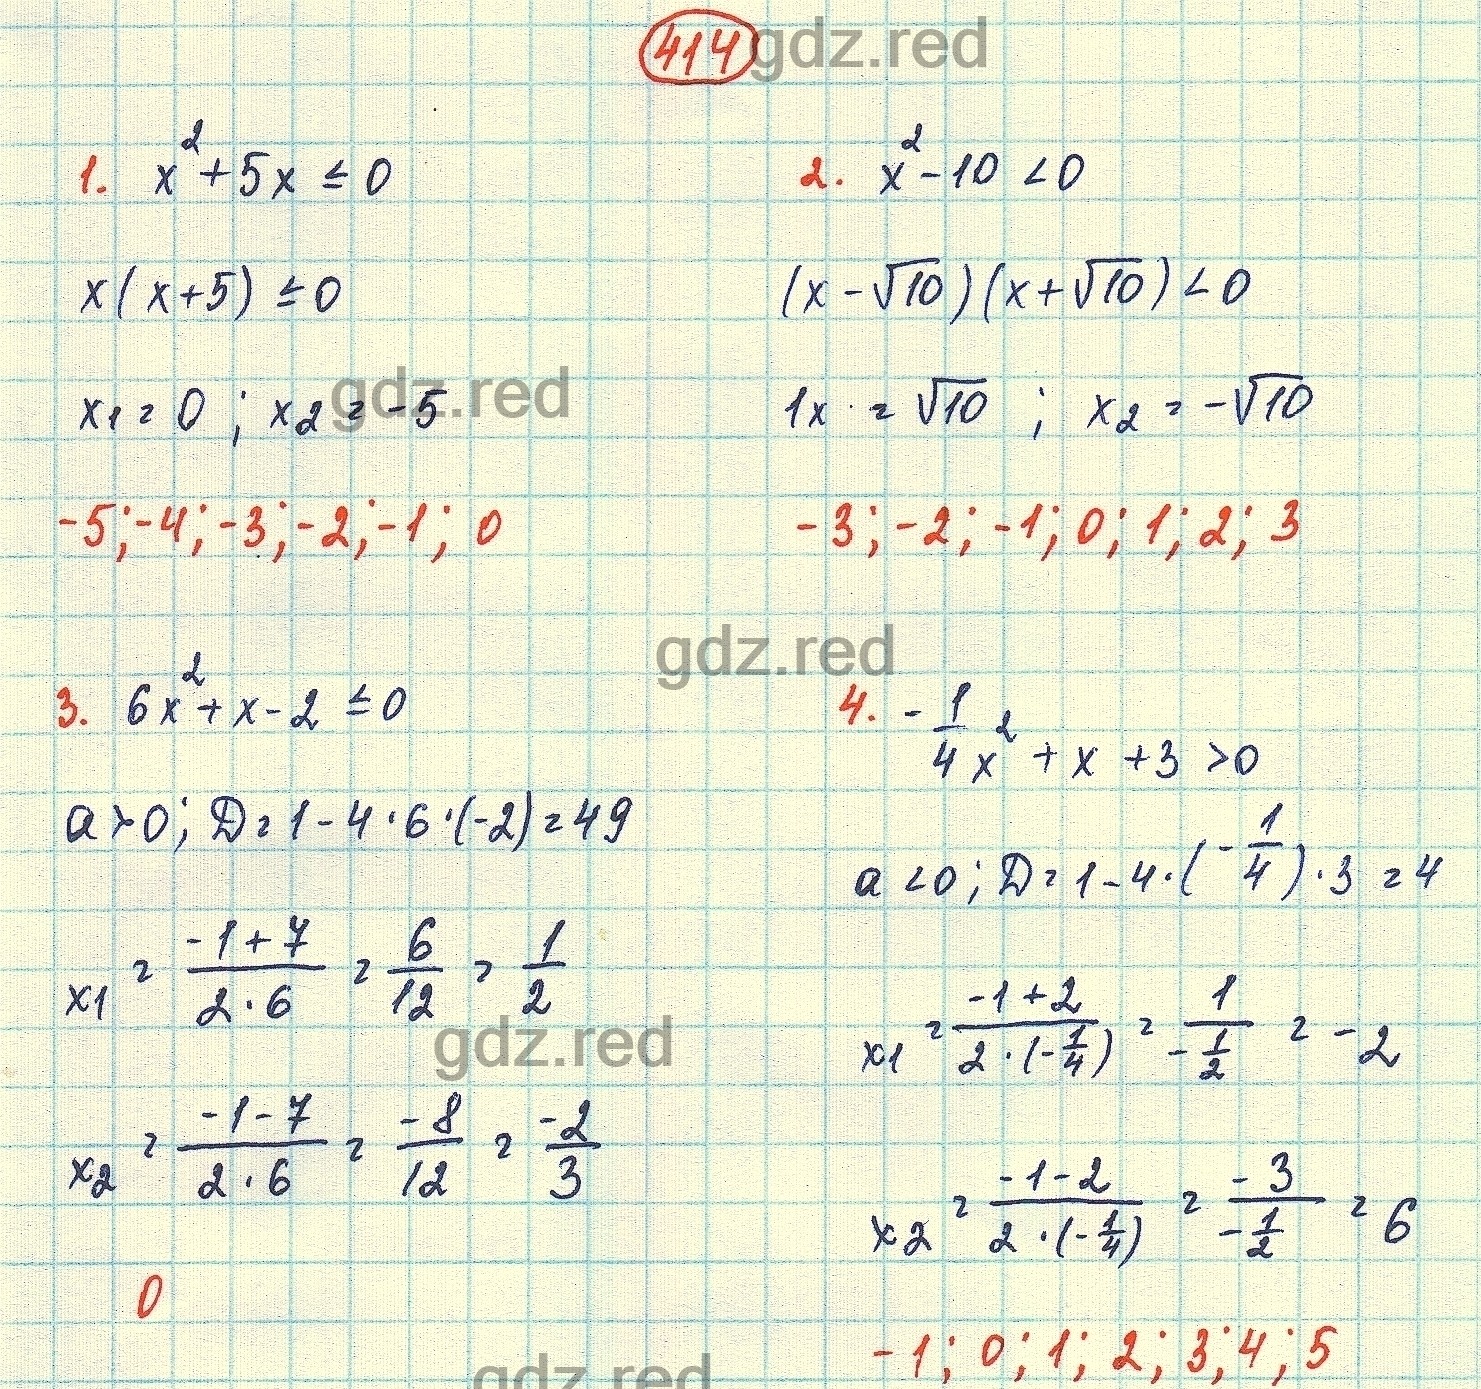 414
gdz.red
1. x² + 5x ≤ 0
x(x+5) ≤ 0
gdz.red
x1 = 0 ; x2 = -5
-5; -4; -3; -2; -1; 0
2. x² - 10 < 0
(x - √10)(x + √10) < 0
1x = √10 ; x2 = -√10
-3; -2; -1; 0; 1; 2; 3
gdz.red
3. 6x² + x - 2 ≤ 0
a > 0; D = 1 - 4·6·(-2) = 49
x1 = (-1+7)/(2·6) = 6/12 = 1/2
gdz.red
x2 = (-1-7)/(2·6) = -8/12 = -2/3
0
4. -1/4 x² + x + 3 > 0
a < 0; D = 1 - 4·(-1/4)·3 = 4
x1 = (-1+2)/(2·(-1/4)) = 1/(-1/2) = -2
x2 = (-1-2)/(2·(-1/4)) = -3/(-1/2) = 6
-1; 0; 1; 2; 3; 4; 5
gdz.red